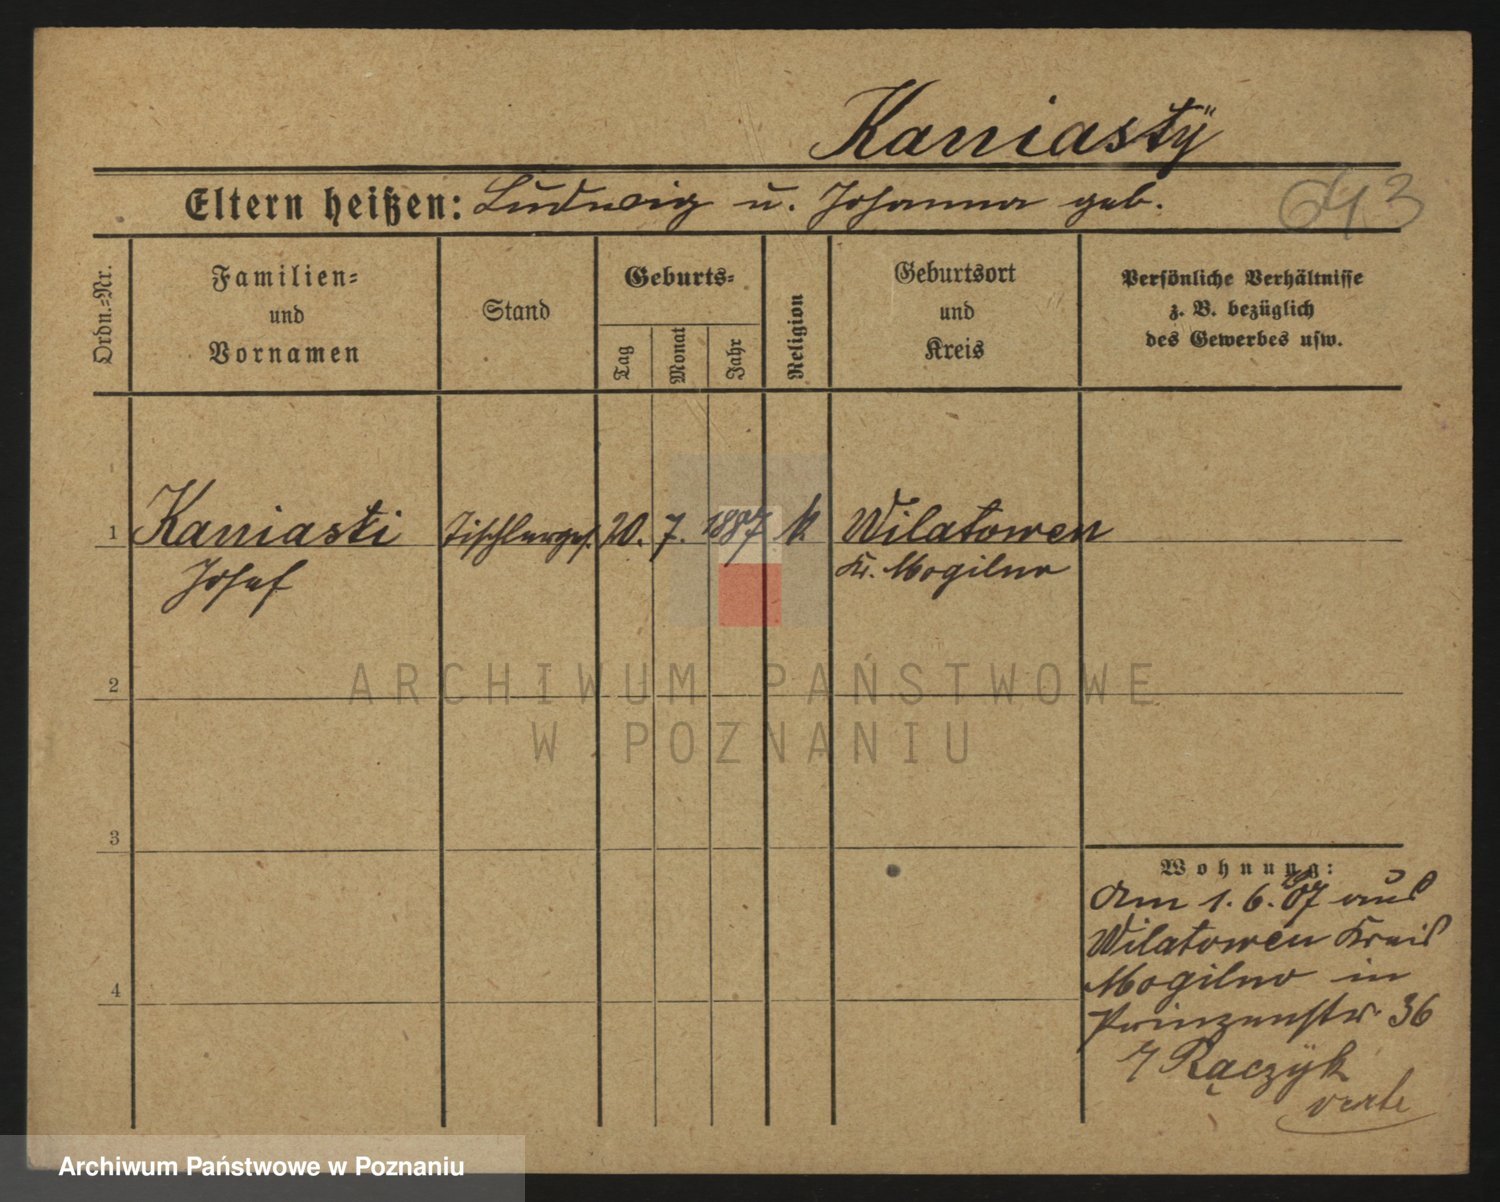 Kaniastÿ
Eltern heißen: Ludwig u. Johanna geb.
643
Ordn.-Nr.
Familien-
und
Vornamen
Stand
Geburts-
Tag
Monat
Jahr
Religion
Geburtsort
und
Kreis
Persönliche Verhältnisse
z. B. bezüglich
des Gewerbes usw.
1 Kaniasti Tischlerges. 20. 7. 1887 k Wilatowen
Josef Kr. Mogilno
2
ARCHIWUM PAŃSTWOWE
W POZNANIU
3
Wohnung:
Am 1. 6. 07 aus
Wilatowen Kreis
4
Mogilno in
Prinzenstr. 36
Rączÿk
verte
Archiwum Państwowe w Poznaniu